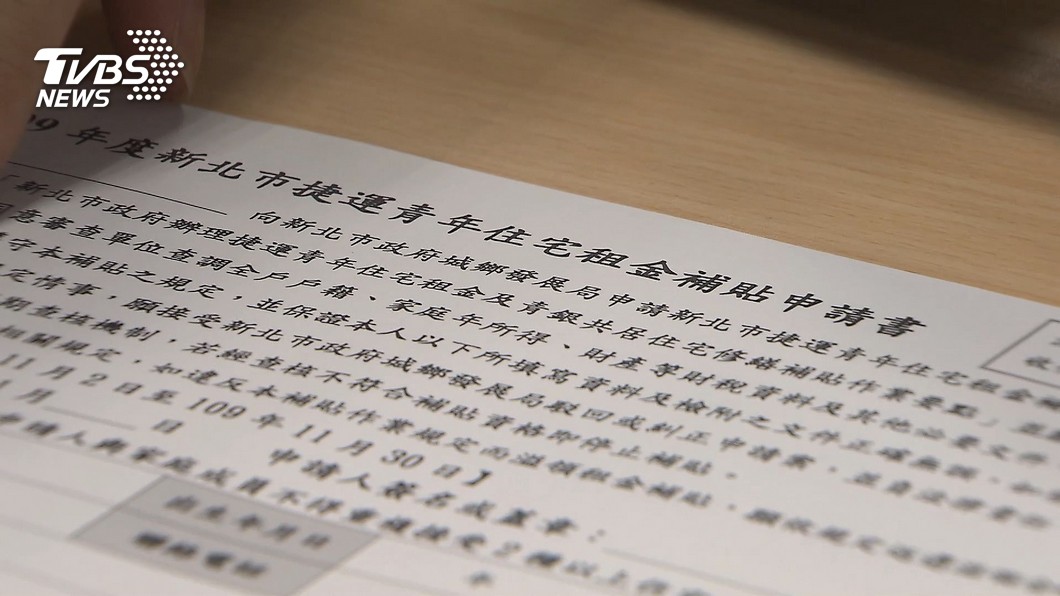 TVBS
NEWS
9 年度新北市捷運青年住宅租金補貼申請書
向新北市政府城鄉發展局申請新北市捷運青年住宅租金
「新北市政府辦理捷運青年住宅租金及青銀共居住宅修繕補貼作業要點」
意審查單位查調全戶戶籍、家庭年所得、財產等財稅資料及其他必要文件
守本補貼之規定，並保證本人以下所填寫資料及檢附之文件正確無誤，如
定情事，願接受新北市政府城鄉發展局駁回或糾正申請案，並
期查核機制，若經查核不符合補貼資格即停止補貼。
相關規定，如違反本補貼作業規定而溢領租金補貼，願依規定
11 月 2 日至 109 年 11 月 30 日】
月 日 申請人簽名或蓋章：
申請人與家庭成員不得重複接受 2 種以上
出生年月日
聯絡電話